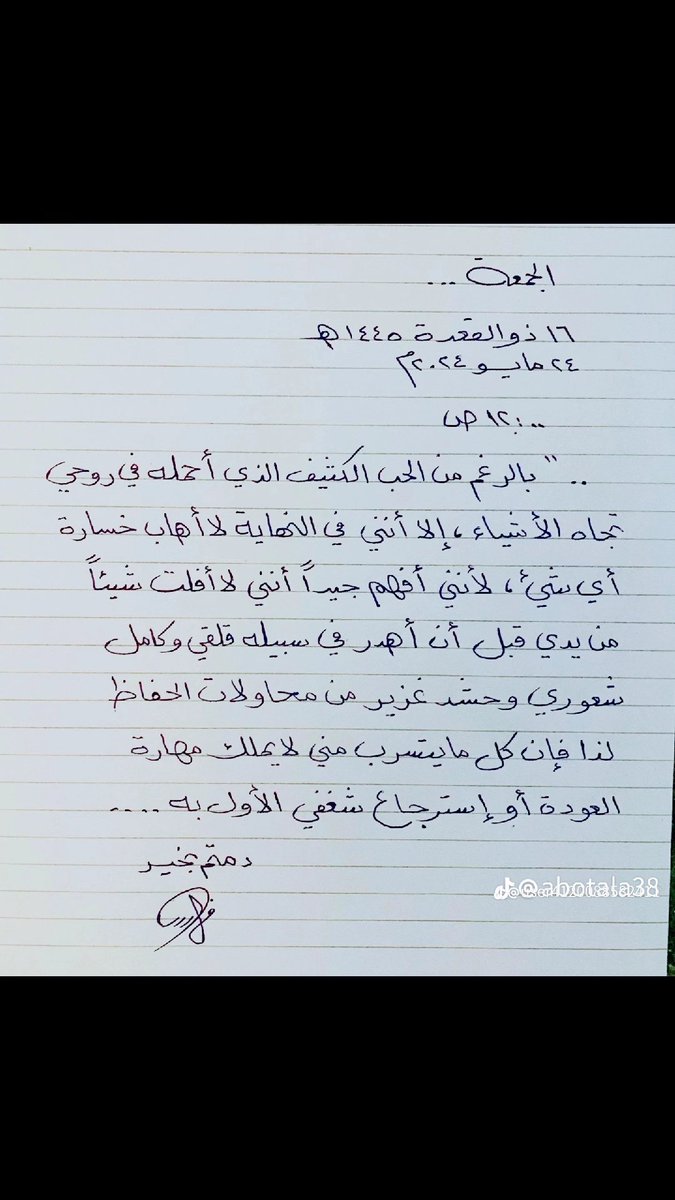 الجمعة ...
١٦ ذو القعدة ١٤٤٥هـ
٢٤ مايو ٢٠٢٤م
١٢:٠٠ ص
.. " بالرغم من الحب الكثيف الذي أحمله في روحي
تجاه الأشياء ، إلا أنني في النهاية لا أهاب خسارة
أي شيء ، لأنني أفهم جيداً أنني لا أفلت شيئاً
من يدي قبل أن أهدر في سبيله قلقي وكامل
شعوري وحشد غزير من محاولات الحفاظ
لذا فإن كل مايتسرب مني لا يملك مهارة
العودة أو إسترجاع شغفي الأول به ....
دمتم بخير
@abotala38